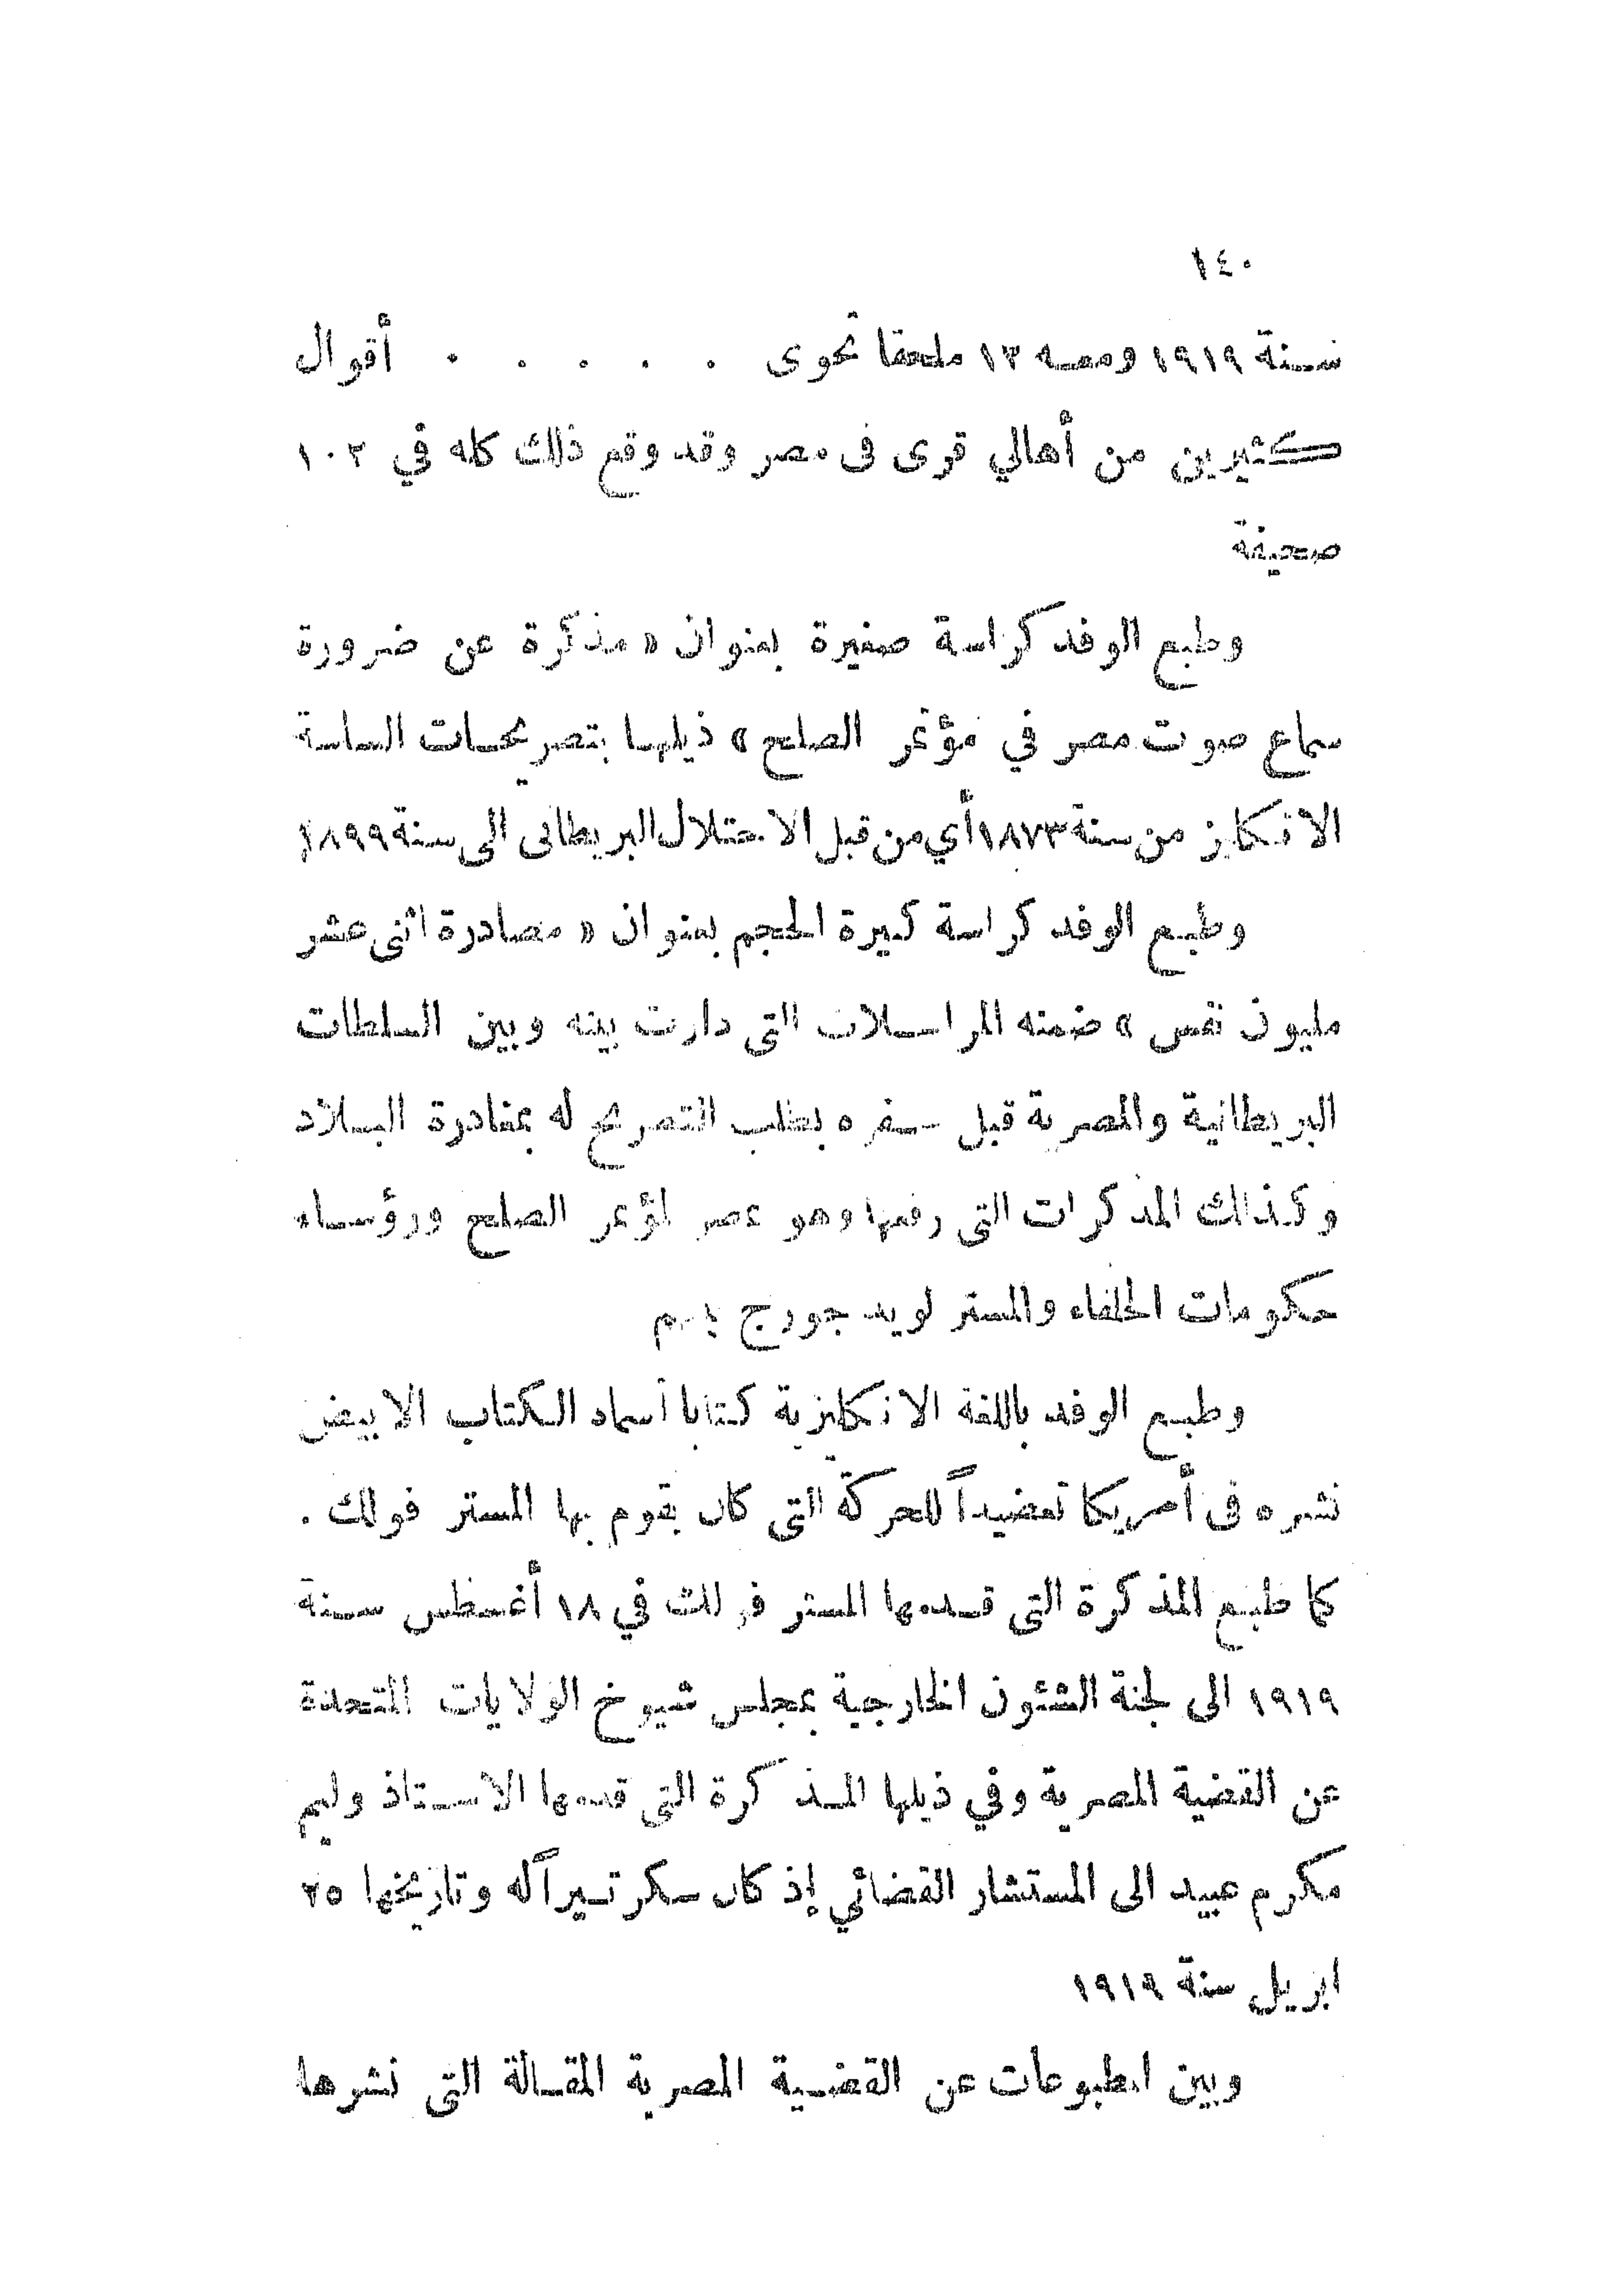 ١٤٠
سنة ١٩١٩ ومعه ١٣ ملحقا تحوى . . . . . أقوال
كثيرين من أهالي قرى فى مصر وقد وقع ذلك كله في ١٠٢
صحيفة
وطبع الوفد كراسة صغيرة بعنوان « مذكرة عن ضرورة
سماع صوت مصر في مؤتمر الصلح » ذيلها بتصريحات الساسة
الانكليز من سنة ١٨٧٣ أي من قبل الاحتلال البريطانى الى سنة ١٨٩٩
وطبع الوفد كراسة كبيرة الحجم بعنوان « مصادرة اثنى عشر
مليون نفس » ضمنه المراسلات التى دارت بينه وبين السلطات
البريطانية والمصرية قبل سفره بطلب التصريح له بمغادرة البلاد
وكذلك المذكرات التى رفعها وهو بمصر لمؤتمر الصلح ورؤساء
حكومات الحلفاء والمستر لويد جورج
وطبع الوفد باللغة الانكليزية كتابا أسماه الكتاب الابيض
نشره فى أمريكا تعضيداً للحركة التى كان يقوم بها المستر فولك .
كما طبع المذكرة التى قدمها المستر فولك في ١٨ أغسطس سنة
١٩١٩ الى لجنة الشئون الخارجية بمجلس شيوخ الولايات المتحدة
عن القضية المصرية وفي ذيلها المذكرة التى قدمها الاستاذ وليم
مكرم عبيد الى المستشار القضائي إذ كان سكرتيراً له وتاريخها ٢٥
ابريل سنة ١٩١٩
وبين المطبوعات عن القضية المصرية المقالة التى نشرها